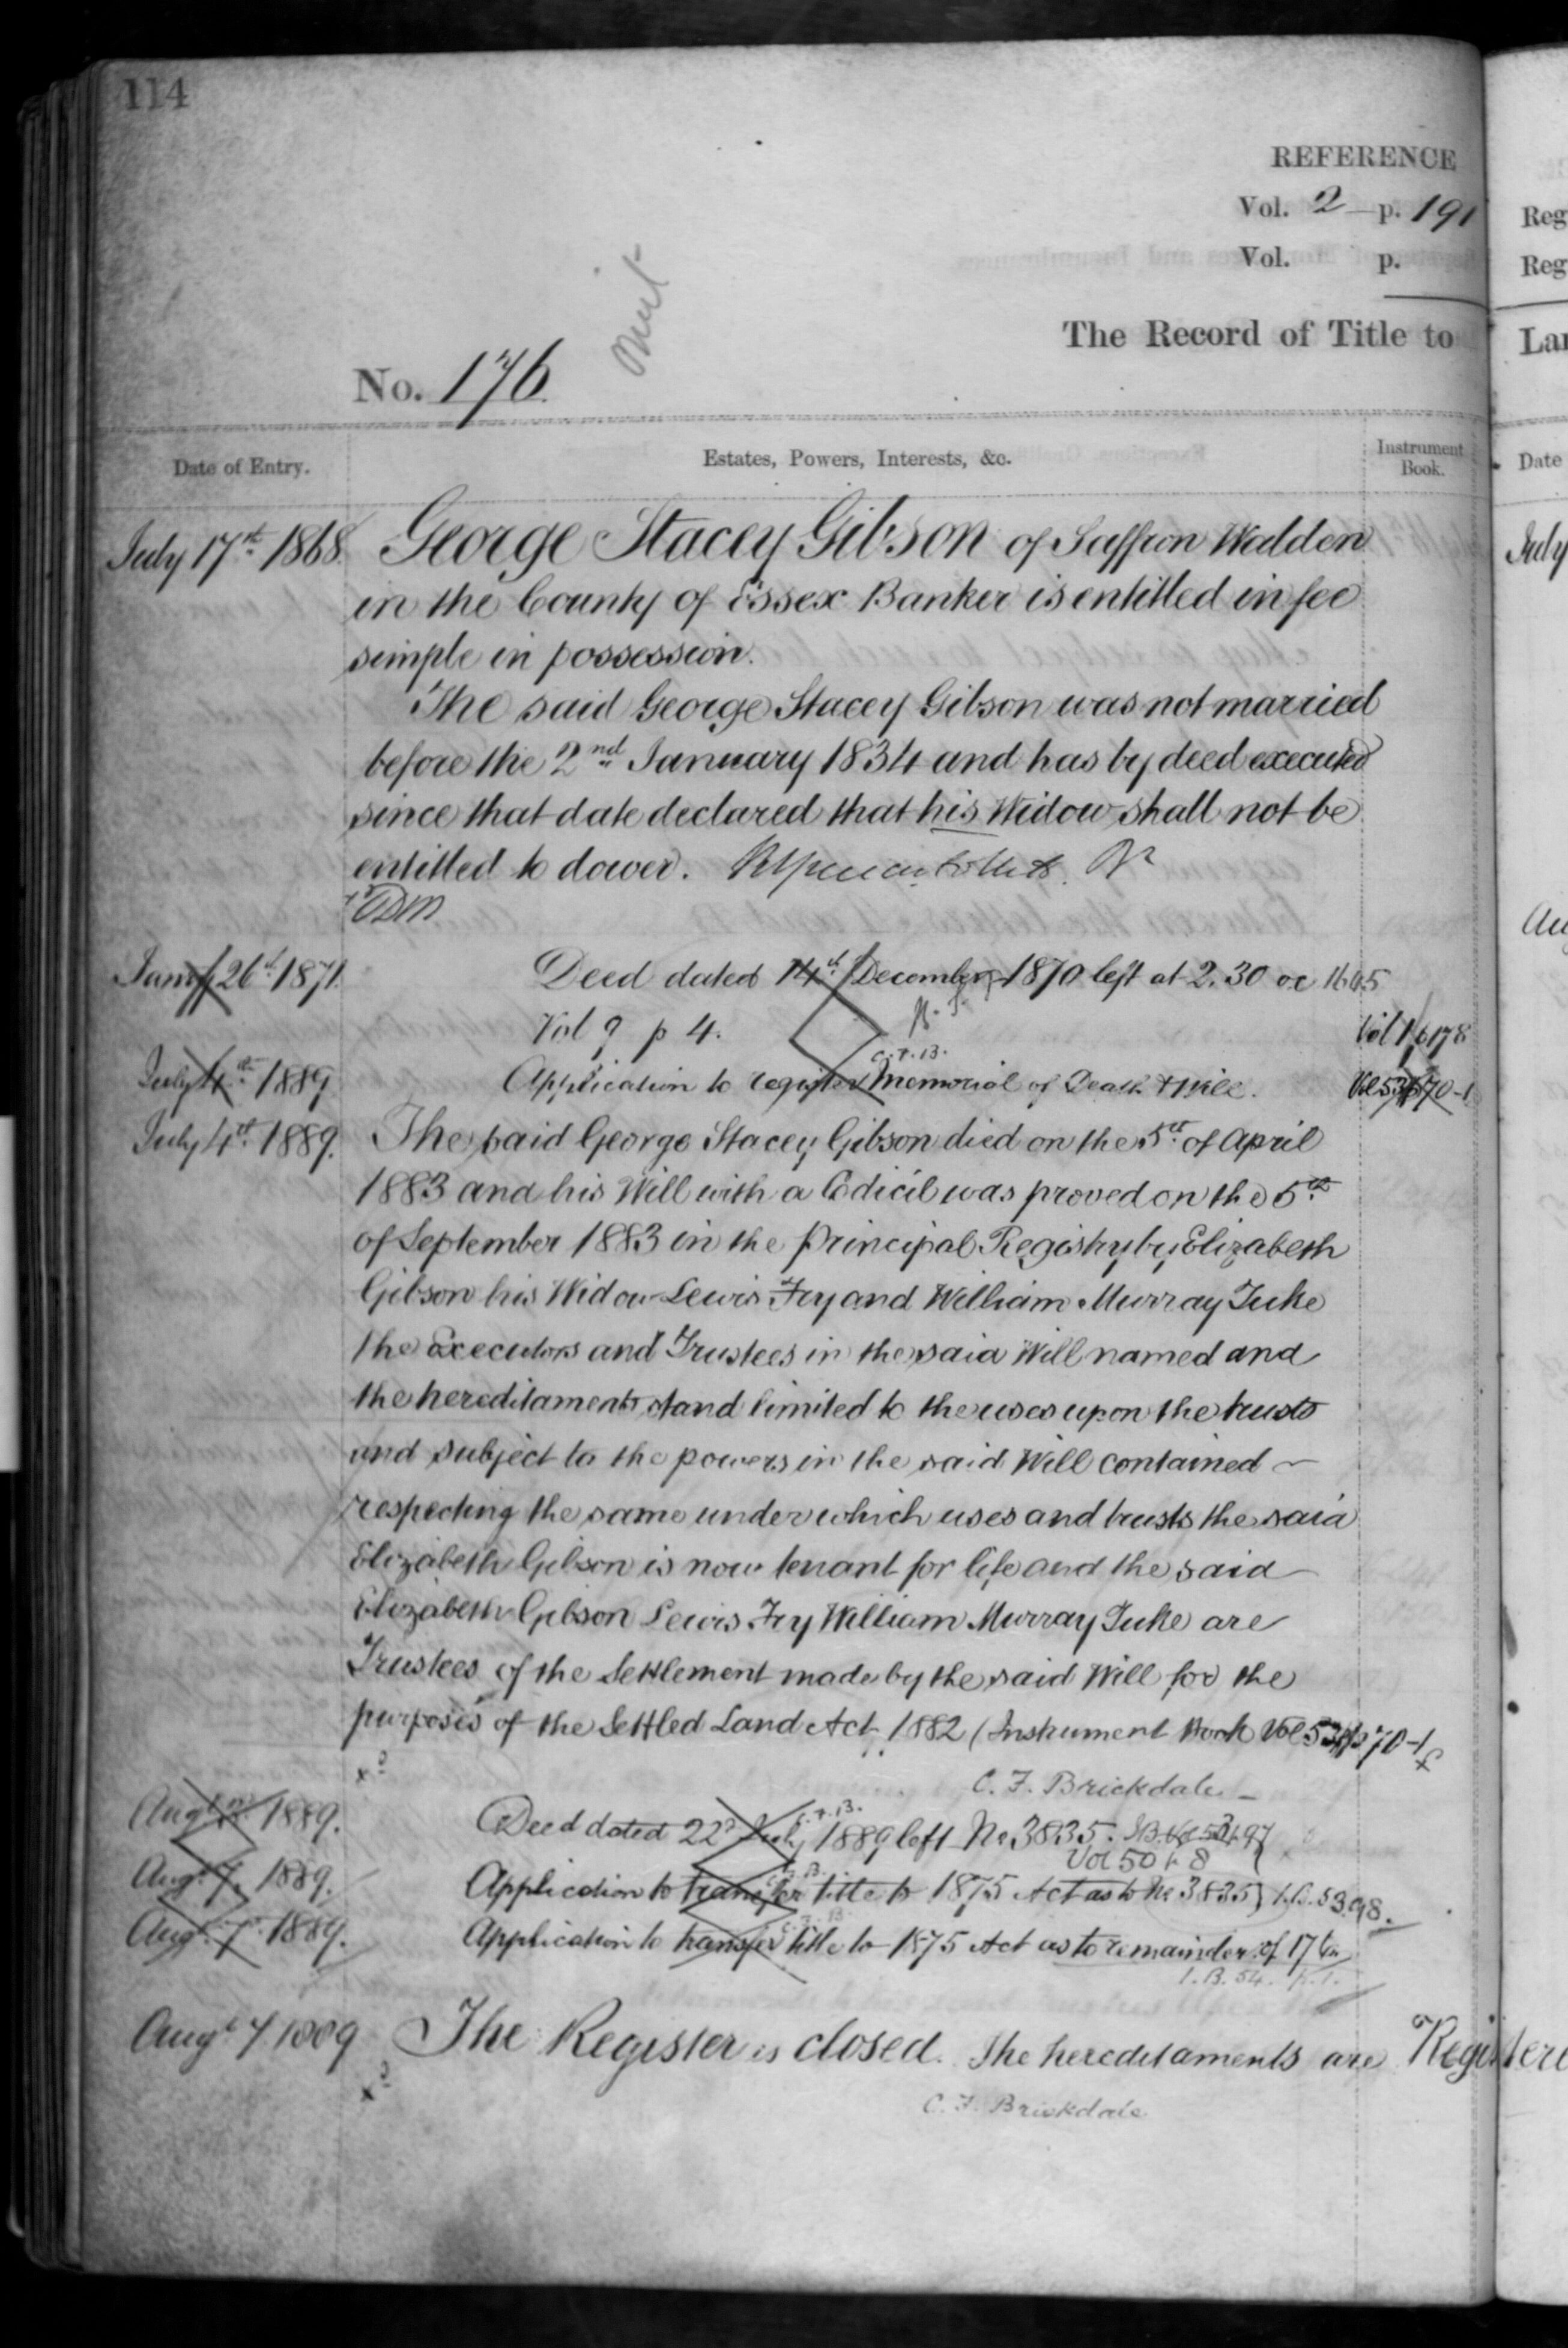 114
REFERENCE
Vol. 2 p. 191
Vol. p.
The Record of Title to
No. 176.
Date of Entry.
Estates, Powers, Interests, &c.
Instrument Book.
July 17th 1868. George Stacey Gibson of Saffron Walden
in the County of Essex Banker is entitled in fee
simple in possession.
The said George Stacey Gibson was not married
before the 2nd January 1834 and has by deed executed
since that date declared that his Widow shall not be
entitled to dower.
Jany 26th 1871. Deed dated 14th December 1870 left at 2.30 oc 1605
Vol 9 p 4. Vol 1 p 178
C.F.B.
July 4th 1889 Application to register Memorial of Death & Will. Vol 53 p 70-1
July 4th 1889. The said George Stacey Gibson died on the 5th of April
1883 and his Will with a Codicil was proved on the 5th
of September 1883 in the Principal Registry by Elizabeth
Gibson his Widow Lewis Fry and William Murray Tuke
the Executors and Trustees in the said Will named and
the hereditaments stand limited to the uses upon the trusts
and subject to the powers in the said Will contained
respecting the same under which uses and trusts the said
Elizabeth Gibson is now tenant for life and the said
Elizabeth Gibson Lewis Fry William Murray Tuke are
Trustees of the Settlement made by the said Will for the
purposes of the Settled Land Act 1882 (Instrument Book Vol 53 p 70-1
C. F. Brickdale
C.F.B.
Augt 1889. Deed dated 22d July 1889 left No 3835. I.B. Vol 53 p. 97
Vol 50 p. 8
Augt 7. 1889. Application to transfer title to 1875 Act as to No 3835 } I.B. 53.98.
C.F.B.
Augt 7. 1889. Application to transfer title to 1875 Act as to remainder of 176
I.B. 54. p.1.
Augt 7 1889 The Register is closed. The hereditaments are Registere
C. F. Brickdale
Reg
Reg
Lan
Date
July
Au